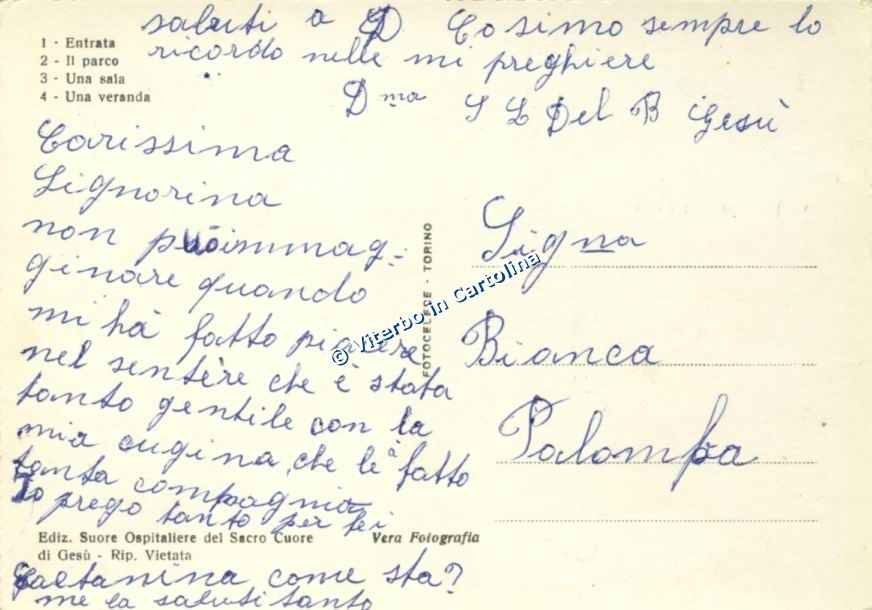 saluti a D Cosimo sempre lo
ricordo nelle mi preghiere
Dma S L Del B Gesù
1 - Entrata
2 - Il parco
3 - Una sala
4 - Una veranda
Carissima
Signorina
non può immag-
ginare quando
mi hà fatto piacere
nel sentère che è stata
tanto gentile con la
mia cugina, che le à fatto
tanta compagnia
Io prego tanto per lei
Ediz. Suore Ospitaliere del Sacro Cuore
di Gesù - Rip. Vietata
Vera Fotografia
Gaetanina come sta?
me la saluti tanto
FOTOCELERE - TORINO
© Viterbo in Cartolina
Signa
Bianca
Palomba